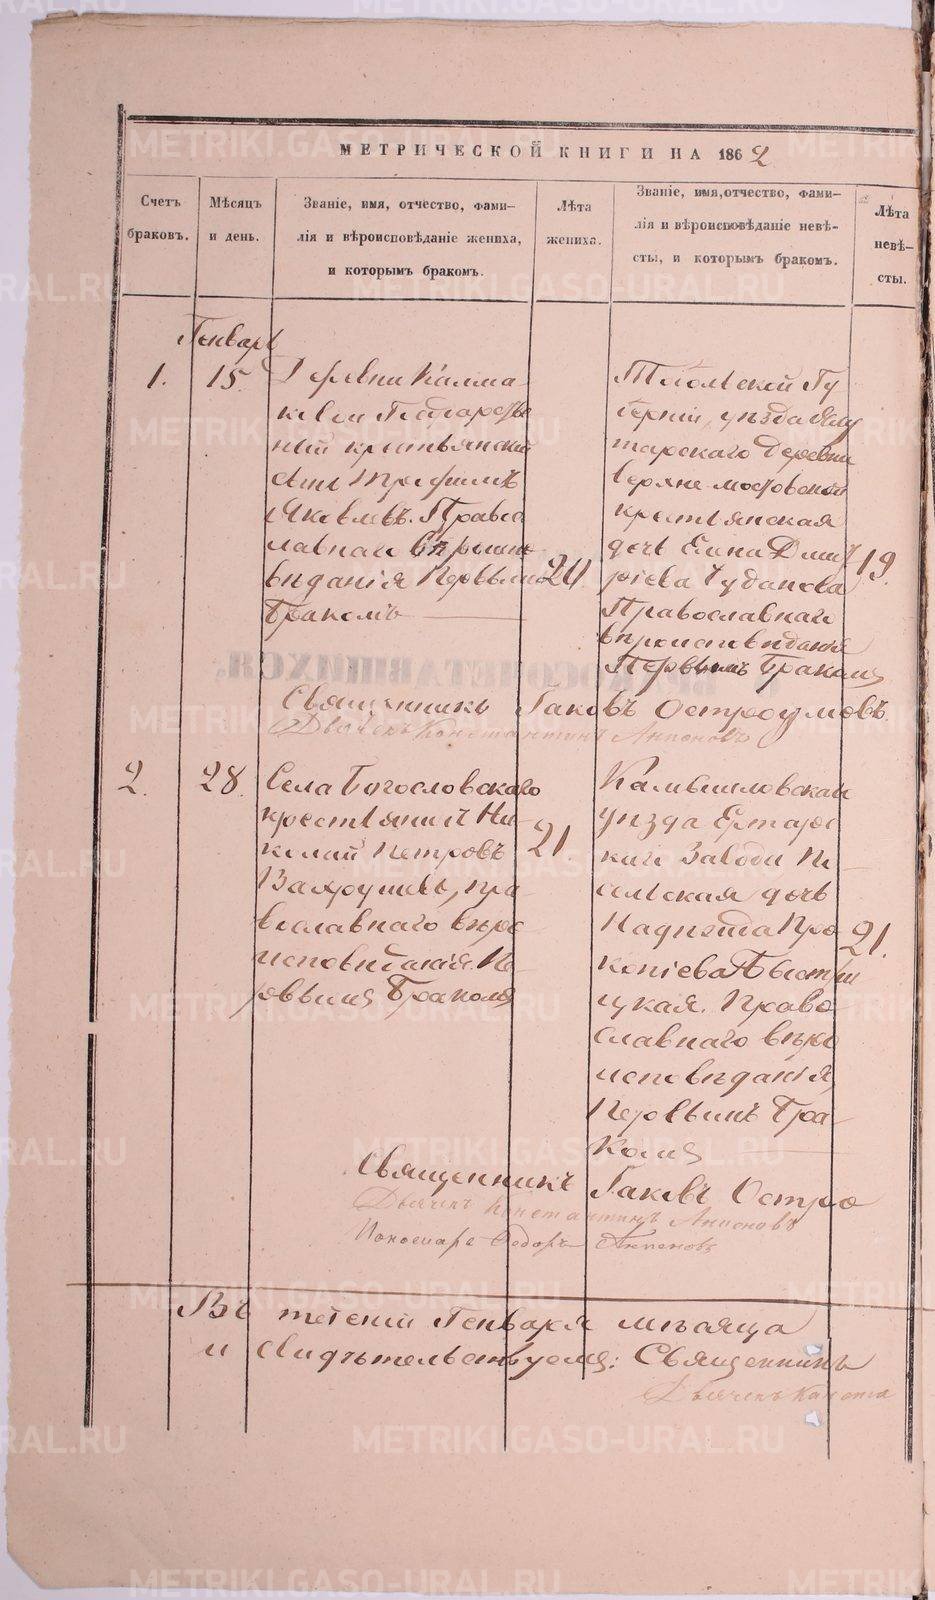 МЕТРИЧЕСКОЙ КНИГИ НА 1862
Счетъ
браковъ.
Мѣсяцъ
и день.
Званіе, имя, отчество, фами-
лія и вѣроисповѣданіе жениха,
и которымъ бракомъ.
Лѣта
жениха.
Званіе, имя, отчество, фами-
лія и вѣроисповѣданіе невѣ-
сты, и которымъ бракомъ.
Лѣта
невѣ-
сты.
Генварь
1.
15.
Деревни Калма-
ковой
крестьянскій
сынъ Трофимъ
Яковлевъ. Право
славнаго вѣроиспо
вѣданія Первымъ
Бракомъ
24
Тобольской Гу
берніи, уѣзда Ялу
торскаго Деревни
Верхне-мостовской
крестьянская
дочь Елена Дмит
ріева Чуданова
Православнаго
вѣроисповѣданія
Первымъ Бракомъ
19.
Священникъ Іаковъ Остроумовъ.
Дьячекъ Константинъ
2.
28.
Села Богословскаго
крестьянинъ Ни-
колай Петровъ
Вахрушевъ, пра-
вославнаго вѣро
исповѣданія. Пе
рвымъ Бракомъ
21.
Камышловскаго
уѣзда Ертарс
каго Завода
сельская дочь
Надежда Про
копіева Быстри
цкая. Право
славнаго вѣро
исповѣданія,
Первымъ Бра-
комъ
21.
Священникъ Іаковъ Остро
Дьячекъ Константинъ
Пономарь Ѳедоръ
Въ теченіи Генваря мѣсяца
и свидѣтельствуемъ: Священникъ
Дьячекъ Конста
METRIKI.GASO-URAL.RU